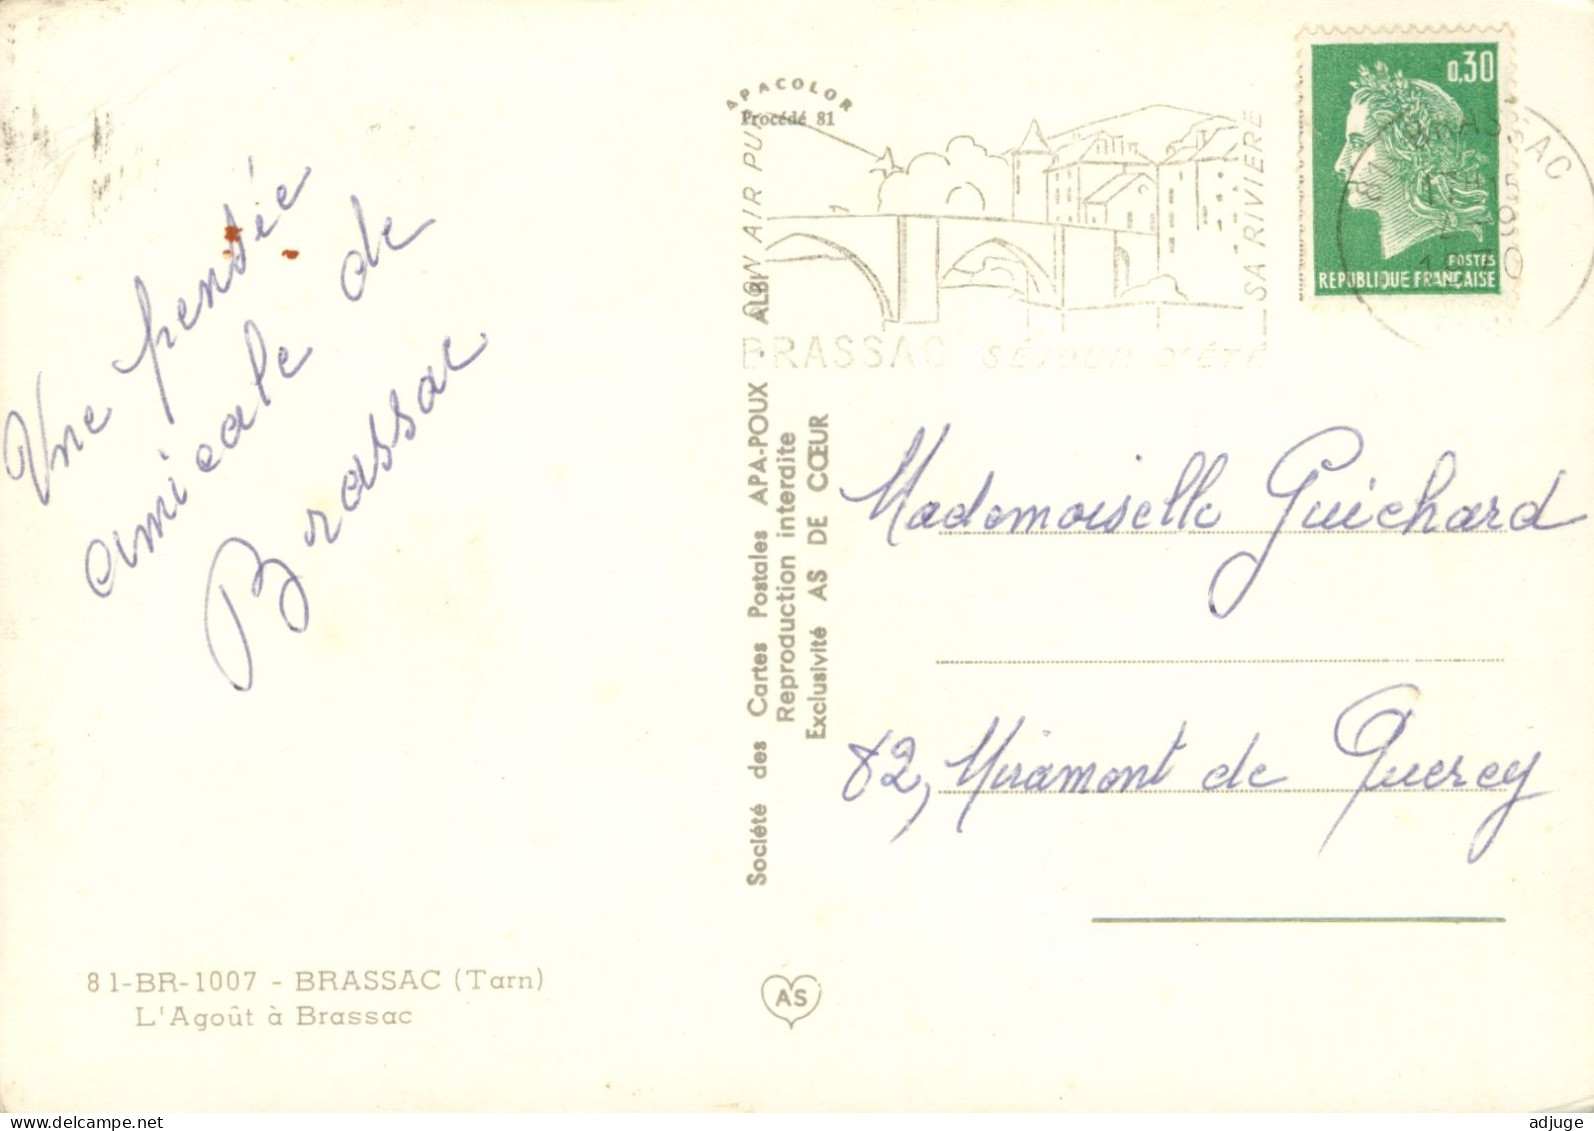 Une pensée
amicale de
Brassac
81-BR-1007 - BRASSAC (Tarn)
L'Agoût à Brassac
APACOLOR
Procédé 81
Société des Cartes Postales APA-POUX - ALBI
Reproduction interdite
Exclusivité AS DE CŒUR
AS
SON AIR PUR
SA RIVIERE
BRASSAC SÉJOUR D'ÉTÉ
0,30
POSTES
REPUBLIQUE FRANÇAISE
BRASSAC
Mademoiselle Guichard
82, Miramont de Quercy
www.delcampe.net
adjuge